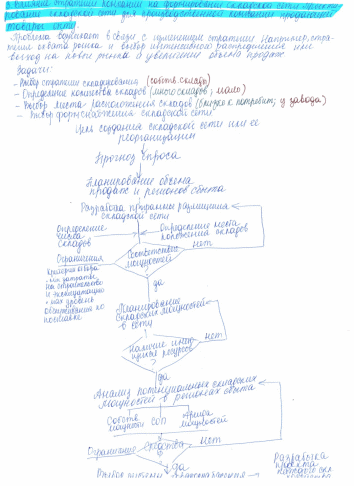 Влияние стратегии компании на формирование складской сети. Проекти-
рование складской сети для производственной компании продающей
товары
Проблема возникает в связи с изменением стратегии. Например, стра-
тегия охвата рынка и выбор интенсивного распределения или
выход на новые рынки и увеличение объема продаж
Задачи:
- Выбор стратегии складирования (собств. склады)
- Определение количества складов (много складов; мало)
- Выбор места расположения складов (близко к потребит; у завода)
- Выбор формы снабжения складской сети.
Цель создания складской сети или ее
реорганизации
Прогноз спроса
Планирование объема
продаж и регионов сбыта
Разработка программы размещения
складской сети
Определение
числа
складов
Определение места
положения складов
Ограничения
Критерии отбора:
затраты
на строительство
и эксплуатацию
мах уровень
обслуживания по
поставке
Соответствие
мощностей
нет
да
Планирование
складских мощностей
в сети
Наличие
ресурсов
нет
да
Анализ потенциальных складских
мощностей в регионах сбыта
Собств
мощности
СОП
Аренда
мощностей
Ограничение
Средства
нет
да
Разработка
проекта